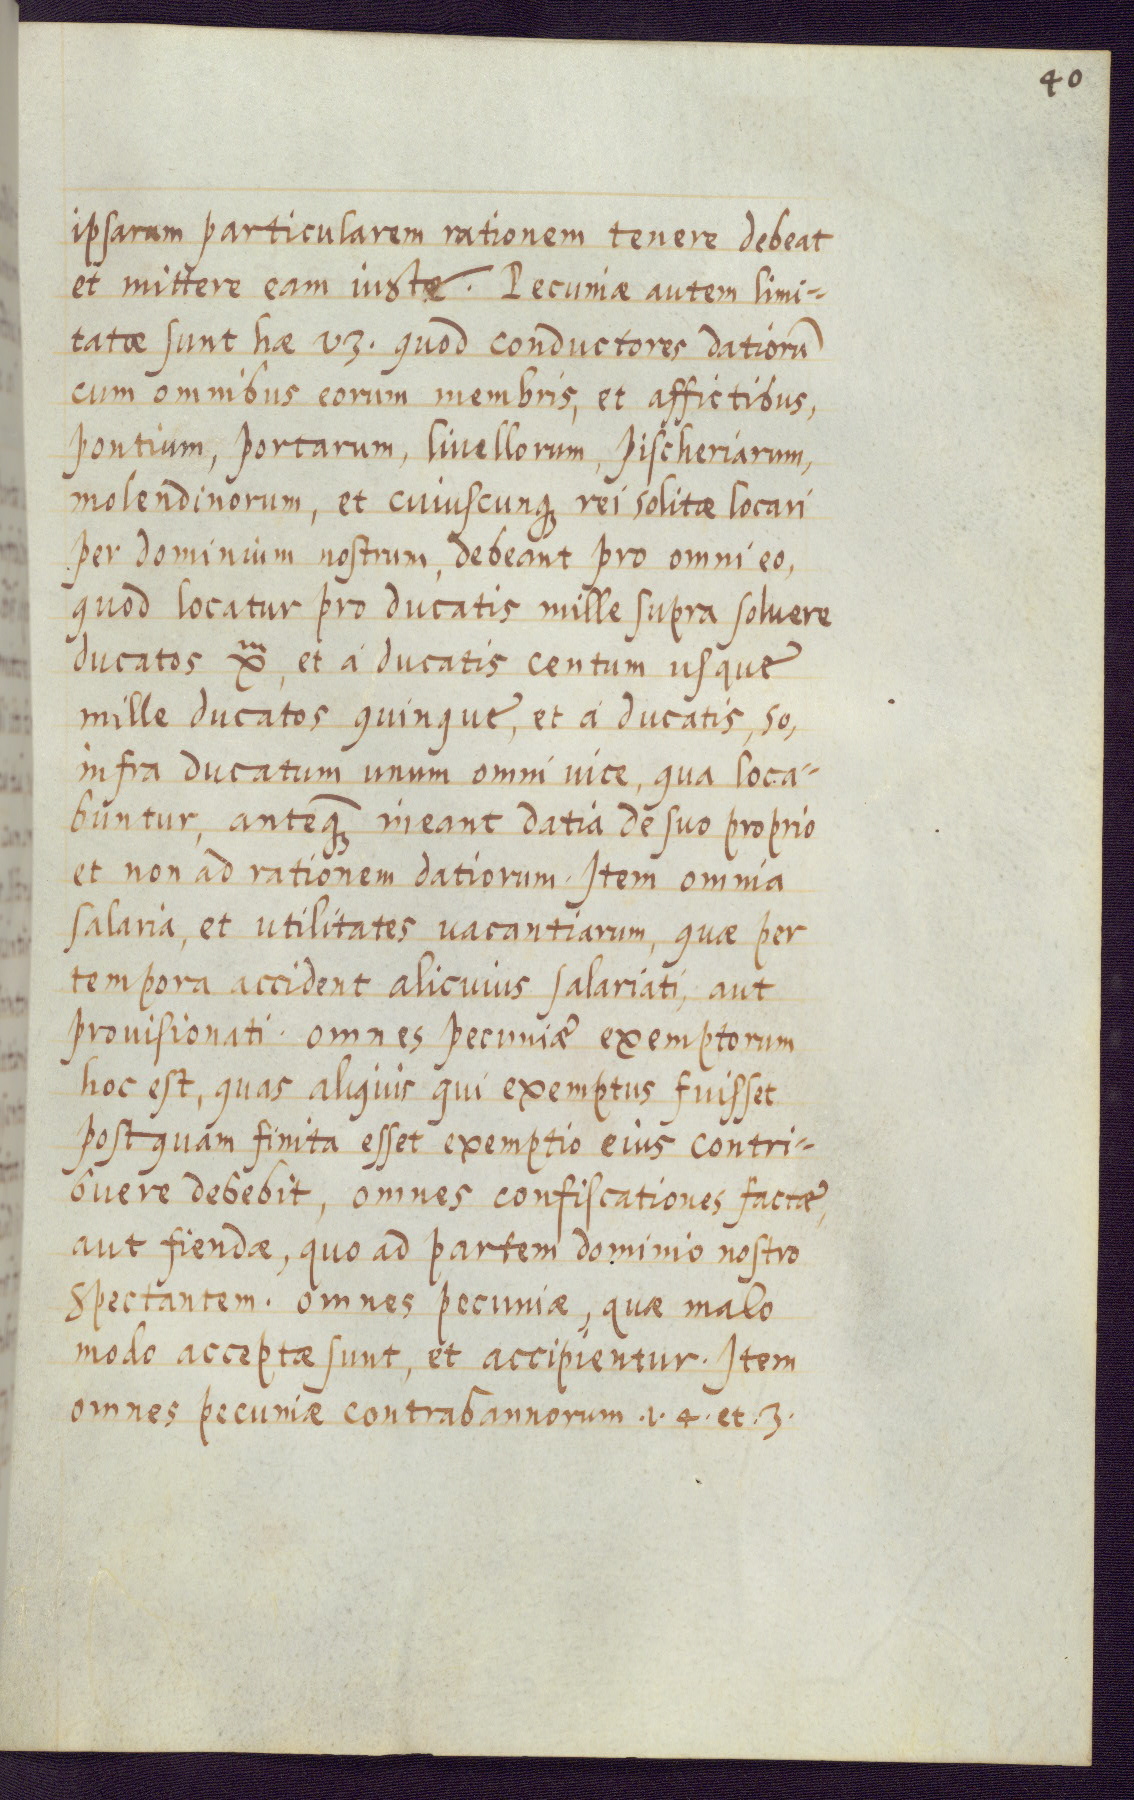 40
ipsarum particularem rationem tenere debeat
et mittere eam iuste. Pecuniæ autem limi-
tatæ sunt hæ vz. quod conductores datiorū
cum omnibus eorum membris, et affictibus,
pontium, portarum, livellorum, pischeriarum,
molendinorum, et cuiuscunqȝ rei solitæ locari
per dominium nostrum, debeant pro omni eo,
quod locatur pro ducatis mille supra soluere
ducatos x̃, et à ducatis centum usque
mille ducatos quinque, et à ducatis, so,
infra ducatum unum omni vice, qua loca-
buntur, anteqȝ ineant datia de suo proprio
et non ad rationem datiorum. Item omnia
salaria, et utilitates vacantiarum, quæ per
tempora accident alicuius salariati, aut
provisionati. omnes pecuniæ exemptorum
hoc est, quas aliquis qui exemptus fuisset
postquam finita esset exemptio eius contri-
buere debebit, omnes confiscationes factæ,
aut fiendæ, quo ad partem dominio nostro
spectantem. omnes pecuniæ, quæ malo
modo acceptæ sunt, et accipientur. Item
omnes pecuniæ contrabannorum .1. 4. et .3.